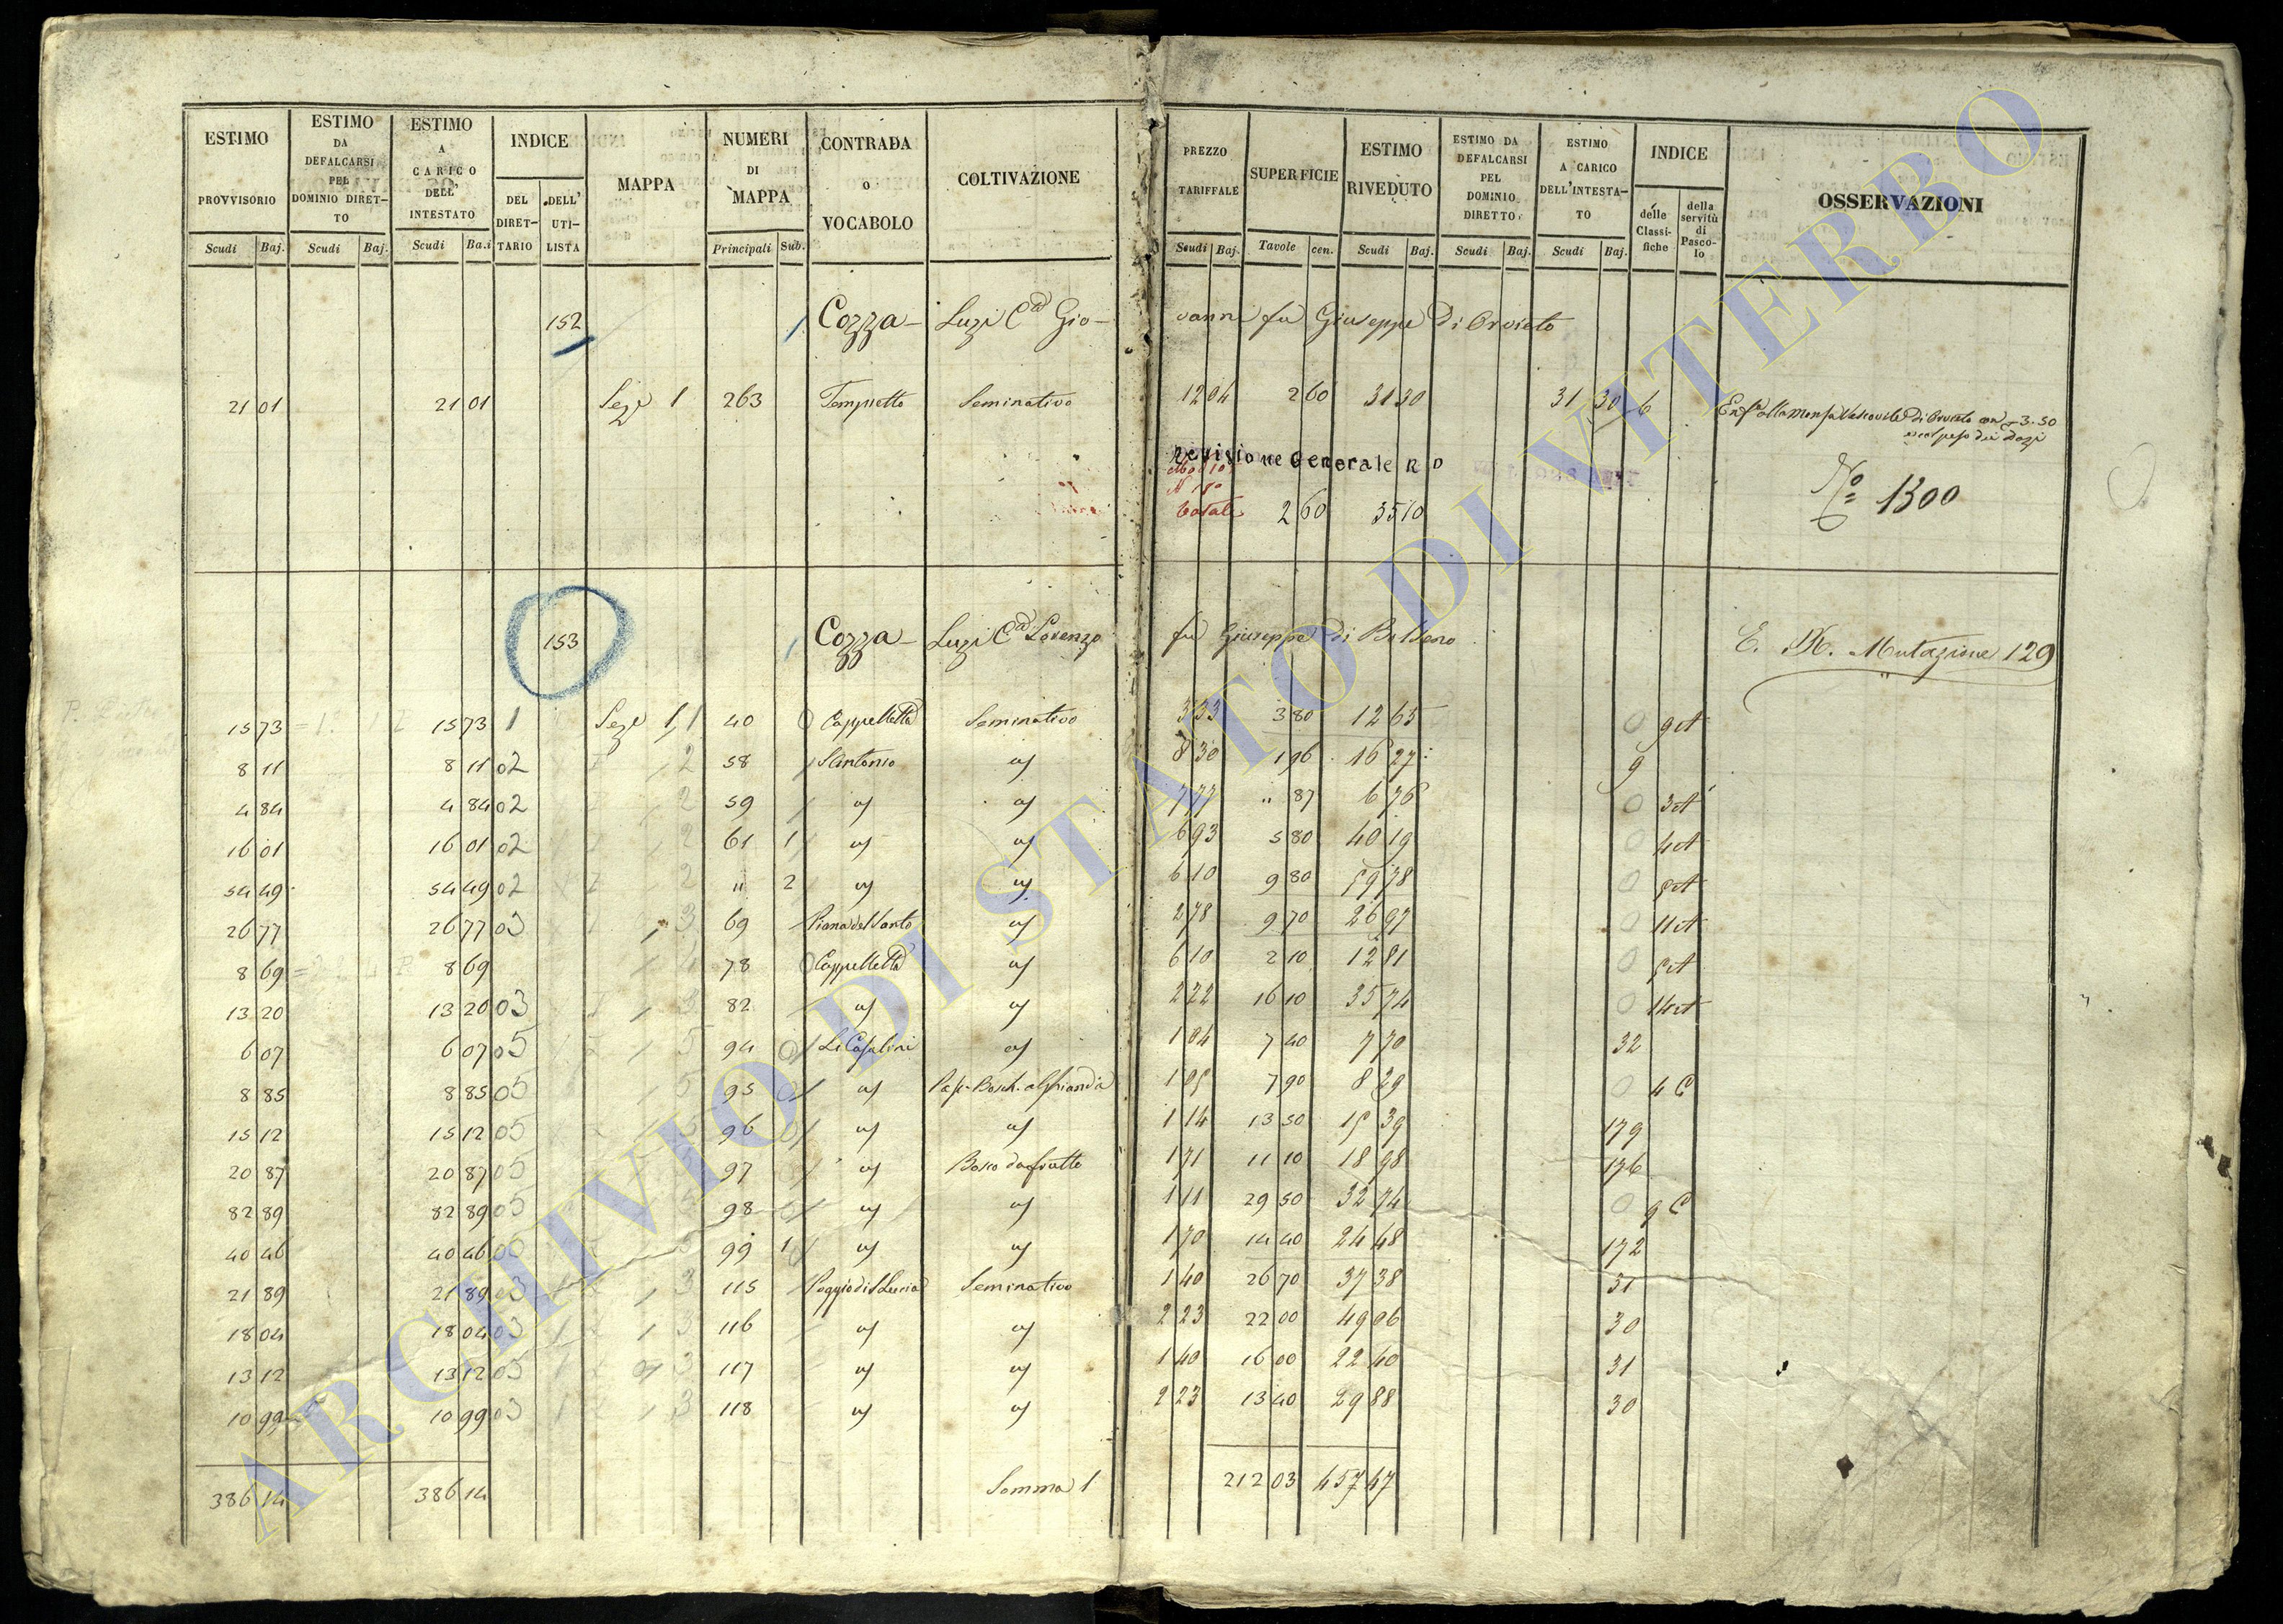 ESTIMO PROVVISORIO Scudi Baj.
ESTIMO DA DEFALCARSI PEL DOMINIO DIRETTO Scudi Baj.
ESTIMO A CARICO DELL' INTESTATO Scudi Ba.i
INDICE DEL DIRETTARIO DELL' UTILISTA
MAPPA
NUMERI DI MAPPA Principali Sub.
CONTRADA O VOCABOLO
COLTIVAZIONE
PREZZO TARIFFALE Scudi Baj.
SUPERFICIE Tavole cen.
ESTIMO RIVEDUTO Scudi Baj.
ESTIMO DA DEFALCARSI PEL DOMINIO DIRETTO Scudi Baj.
ESTIMO A CARICO DELL'INTESTATO Scudi Baj.
INDICE delle Classifiche della servitù di Pascolo
OSSERVAZIONI
152 Cozza- Luzi Gio- vanni fu Giuseppe Di Orvieto
21 01 21 01 Seze 1 263 Tempietto Seminativo 12 04 2 60 31 30 31 30 6
Revisione Generale R D
Totale 2 60 35 10
No 1300
153 Cozza- Luzi Lorenzo fu Giuseppe di Bolseno
Mutazione 129
15 73 15 73 1 Seze 1 1 40 Cappelletta Seminativo 3 33 3 80 12 65 0 9 A
8 11 8 11 02 2 58 S Antonio 8 30 1 96 16 27 9
4 84 4 84 02 2 59 7 77 " 87 6 76 0 3 A
16 01 16 01 02 2 61 1 6 93 5 80 40 19 0 4 A
54 49 54 49 02 2 " 2 6 10 9 80 59 78 0 5 A
26 77 26 77 03 3 69 Piana del Santo 2 78 9 70 26 97 0 11 A
8 69 8 69 78 Cappelletta 6 10 2 10 12 81 0 5 A
13 20 13 20 03 3 82 2 22 16 10 35 74 0 14 A
6 07 6 07 05 5 94 Li Casalini 1 04 7 40 7 70 32
8 85 8 85 05 5 95 1 05 7 90 8 29 0 4 C
15 12 15 12 05 5 96 1 14 13 50 15 39 179
20 87 20 87 05 97 Bosco da frutto 1 71 11 10 18 98 176
82 89 82 89 05 98 1 11 29 50 32 74 0 9 C
40 46 40 46 99 1 1 70 14 40 24 48 172
21 89 21 89 03 3 115 Poggio di S Lucia Seminativo 1 40 26 70 37 38 31
18 04 18 04 03 3 116 2 23 22 00 49 06 30
13 12 13 12 03 3 117 1 40 16 00 22 40 31
10 99 10 99 03 3 118 2 23 13 40 29 88 30
386 14 386 14 Somma 1 212 03 457 47
ARCHIVIO DI STATO DI VITERBO